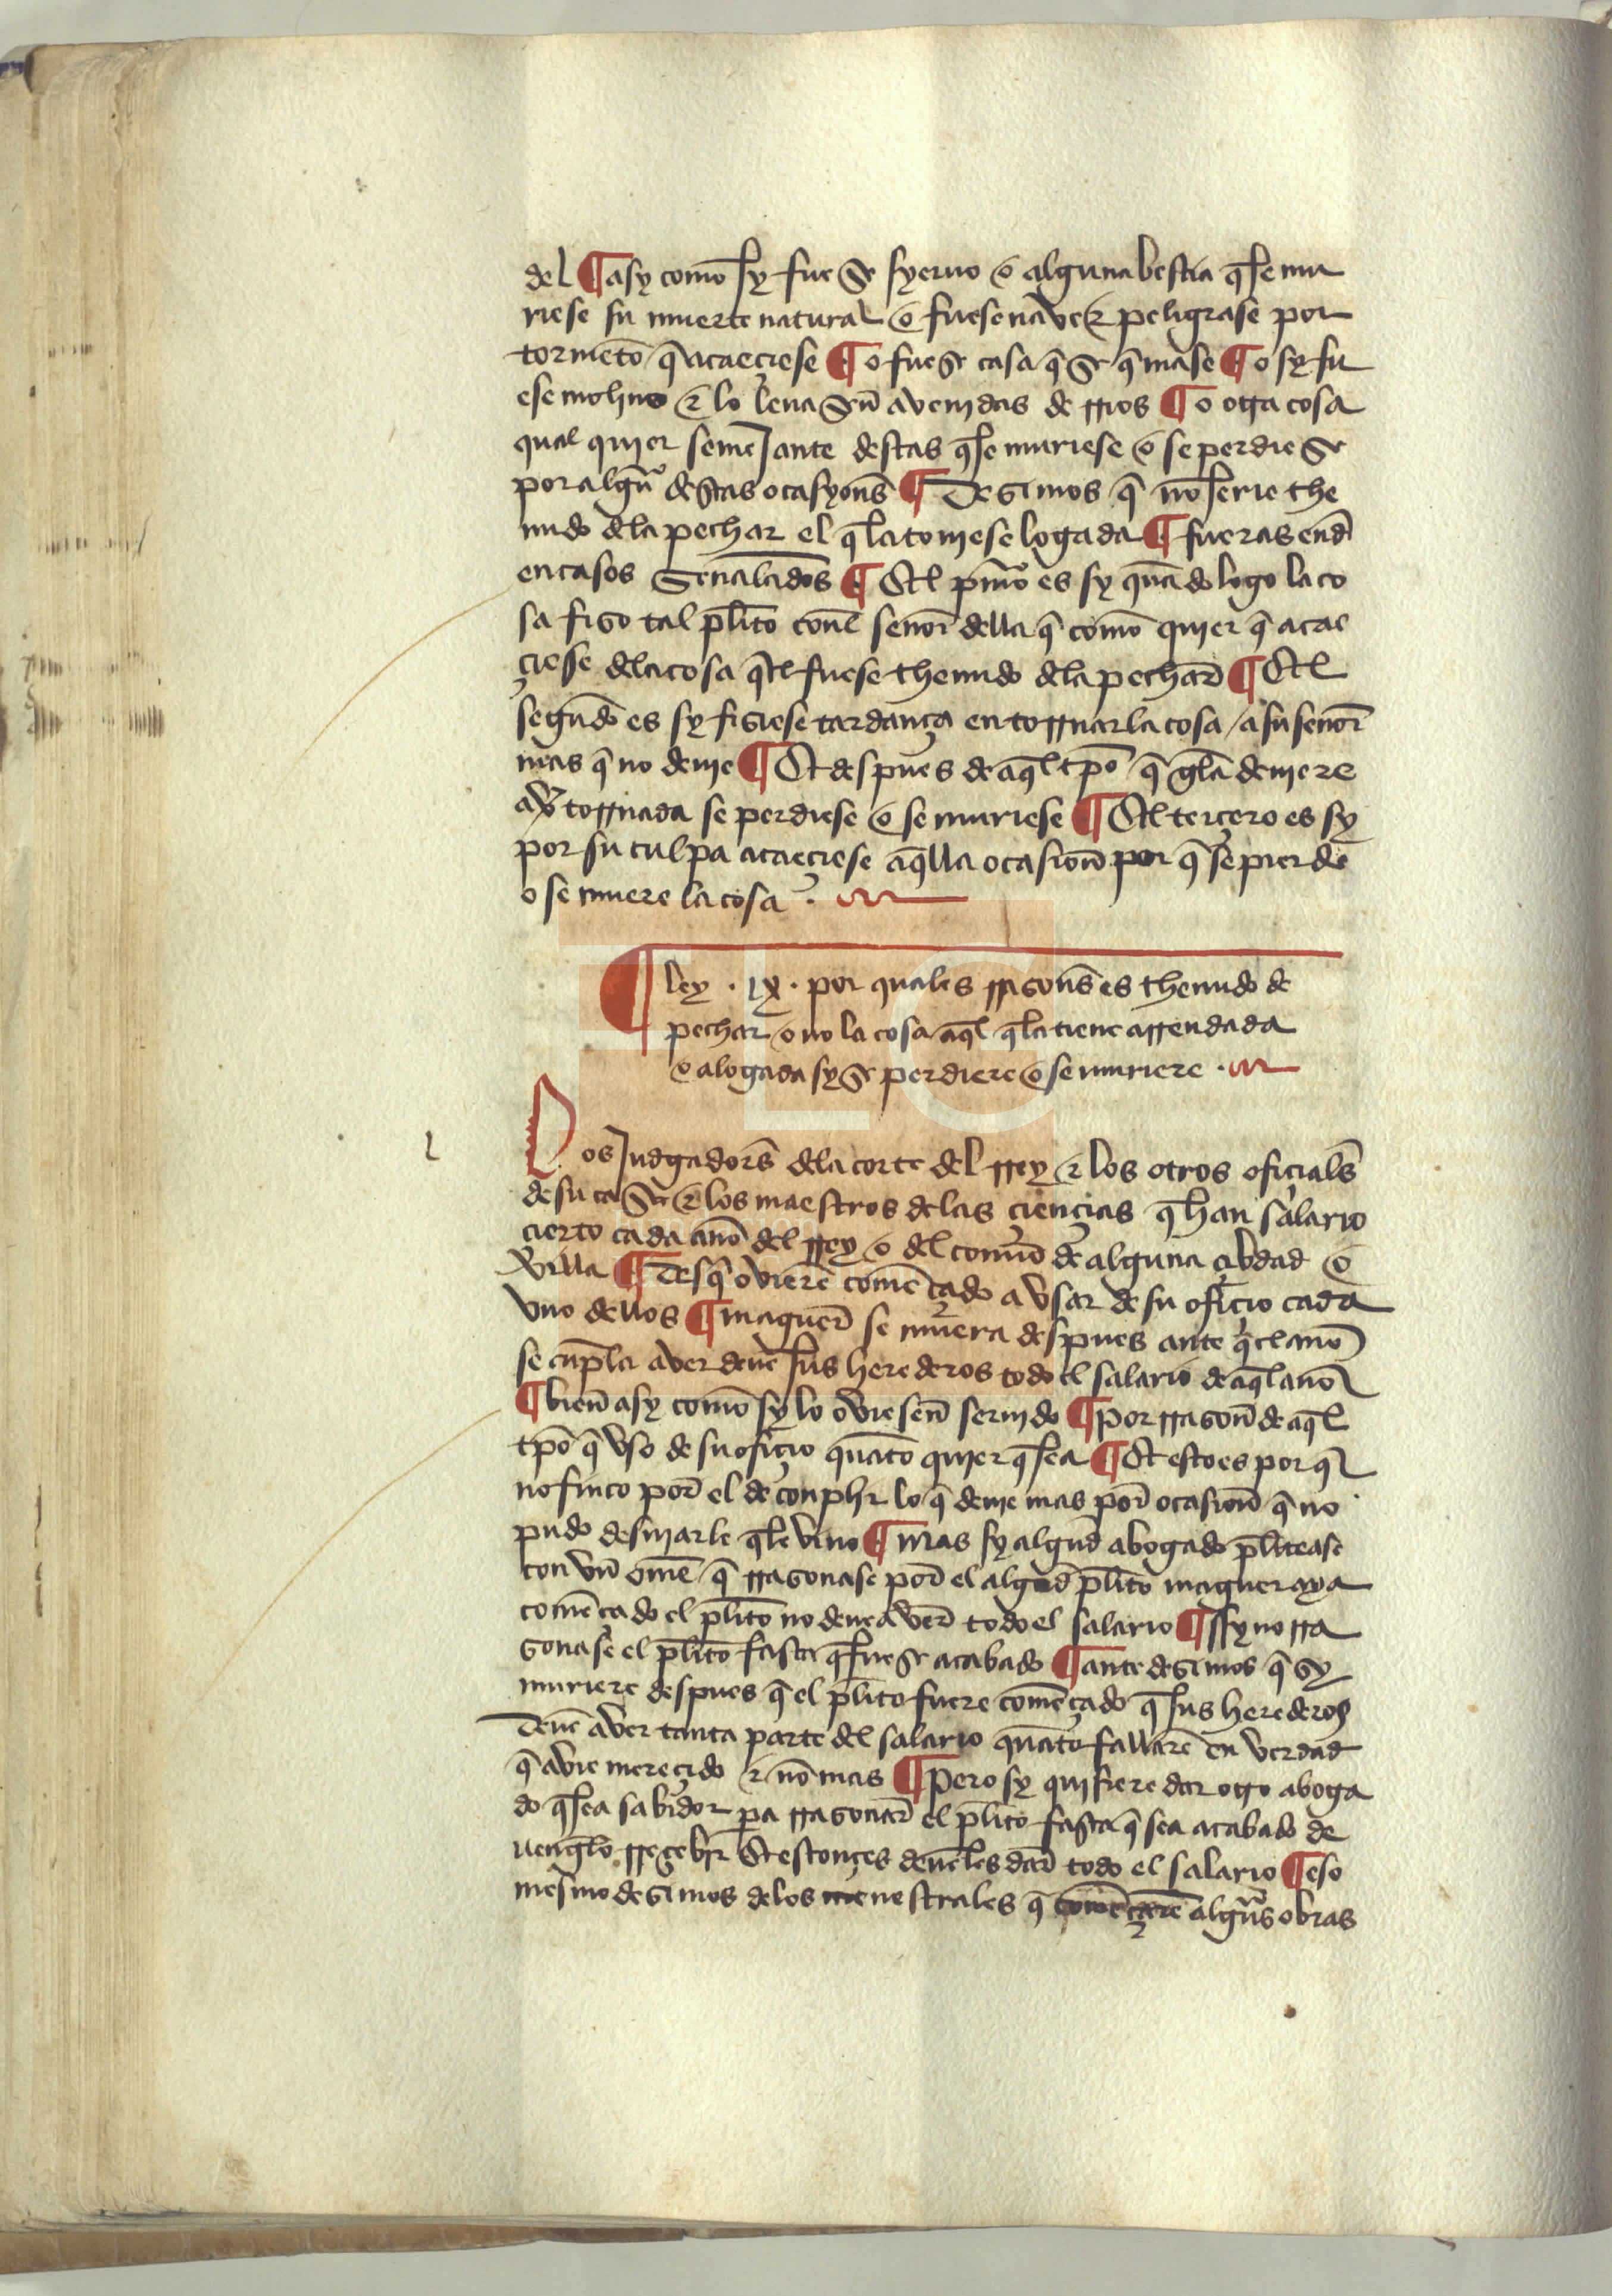 del ¶ asy como sy fuese syeruo o alguna bestia q̃ se mu
riese su muerte natural o fuese naue ⁊ peligrase por
tormẽto q̃ acaeçiese ¶ o fuese casa q̃ se q̃mase ¶ o sy fu
ese molino ⁊ lo leuasen̄ avenidas de rrios ¶ o otra cosa
qual quier semejante destas q̃ se muriese o se perdiese
por algũo destas ocasyons̃ ¶ Desimos q̃ nõ serie the
nudo dela pechar el q̃ la touiese logada ¶ fueras end̃
en casos señalados ¶ El pm̃o es sy quãdo logo la co
sa fiso tal pl̃ito conl señor della q̃ como quier q̃ acae
çiese dela cosa q̃l fuese thenudo dela pechar̃ ¶ El
segundo es sy fisiese tardança en tornnar la cosa a su señor
mas q̃ no deuie ¶ Et despues de aq̃l tp̃o q̃ gela deuiere
av̾ tornnada se perdiese o se muriese ¶ El terçero es sy
por su culpa acaeçiese aq̃lla ocasion̄ por q̃ se pierde
o se muere la cosa .
¶ ley . ix . por quales rrasons̃ es thenudo de
pechar o no la cosa aq̃l q̃ la tiene arrendada
o alogada sy se perdiere o se muriere .
l
Los Judgadors̃ dela corte del rrey ⁊ los otros ofiçials̃
de su casa ⁊ los maestros delas çiençias q̃ han salario
cierto cada año del rrey o del comũ de alguna çibdad o
villa ¶ Desq̃ ovierẽ comẽçado a vsar de su ofiçio cada
vno dellos ¶ maguer̃ se muera despues ante q̃ el año
se cũpla aver deuẽ sus herederos todo el salario de aq̃l año
¶ bien̄ asy como sy lo oviesen̄ seruido ¶ por rrason̄ de aq̃l
tp̃o q̃ vso de su ofiçio quãto quier q̃ sea ¶ Et esto es por q̃
no finco por̃ el de conplir lo q̃ deuie mas por̃ ocasion̄ q̃ no
pudo desuiarle q̃ le vino ¶ mas sy algud̃ abogado pl̃itease
con vn̄ omẽ q̃ rrasonase por̃ el algud̃ pl̃ito maguer aya
comẽçado el pl̃ito no deue aver̃ todo el salario ¶ sy no rra
sonase el pl̃ito fasta q̃ fuese acabado ¶ ante desimos q̃ sy
muriere despues q̃ el pl̃ito fuere comẽçado q̃ sus herederos
deuẽ aver tanta parte del salario quãto fallarẽ en verdad
q̃ avie mereçido ⁊ nõ mas ¶ Pero sy quisiere dar otro aboga
do q̃ sea sabidor pa rrasonar̃ el pl̃ito fasta q̃ sea acabado de
uengelo rreçebir Et estonçes deuẽles dar̃ todo el salario ¶ eso
mesmo desimos delos menestrales q̃ comẽçarẽ algũas obras